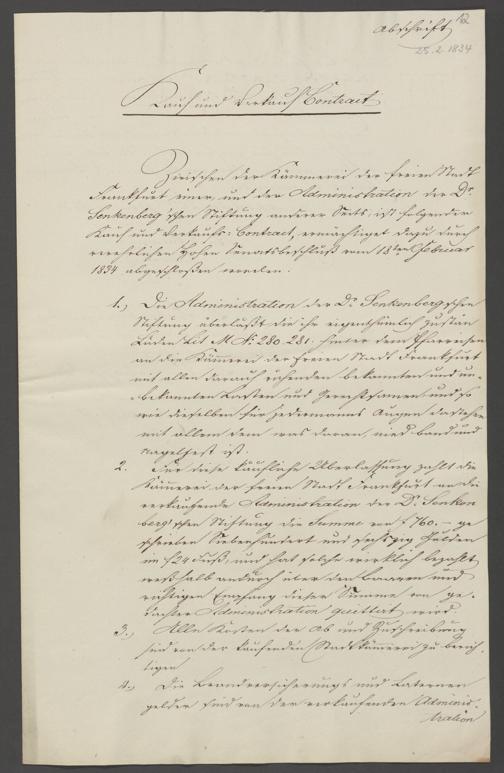 Abschrift 12
25.2.1834
Kauf und Verkauf Contract
Zwischen der Kämmerei der freien Stadt
Frankfurt einer, und der Administration der Dr.
Senkenberg'schen Stiftung anderer Seits, ist folgender
Kauf und Verkaufs-Contract, ermächtiget dazu durch
verehrlichen Hohen Senatsbeschluß vom 18ten Februar
1834 abgeschloßen worden.
1.) Die Administration der Dr. Senkenberg'schen
Stiftung überläßt die ihr eigenthümlich zustän
Läden Lit. M No. 280. 281. hinter dem Pfarreisen
an die Kämmerei der freien Stadt Frankfurt
mit allen darauf ruhenden bekannten und un-
bekannten Lasten und Gerechtsamen und so
wie dieselben für jedermanns Augen dastehen
mit allem dem was daran, nied- band und
nagelfest ist.
2. Für diese käufliche Überlassung zahlt die
Kämmerei der freien Stadt Frankfurt an die
verkaufende Administration der Dr. Senken
berg'schen Stiftung die Summe von f 760.– ge
schrieben Siebenhundert und sechszig Gulden
im f 24 Fuß, und hat solche wirklich bezahlt
weßhalb andurch über den baaren und
richtigen Empfang dieser Summe von ge-
dachter Administration quittirt wird.
3.) Alle Kosten der Ab und Zuschreibung
sind von der kaufenden Stadtkämmerei zu berich-
tigen
4.) Die Brandversicherungs und Laternen
gelder sind von der verkaufenden Adminis-
tration